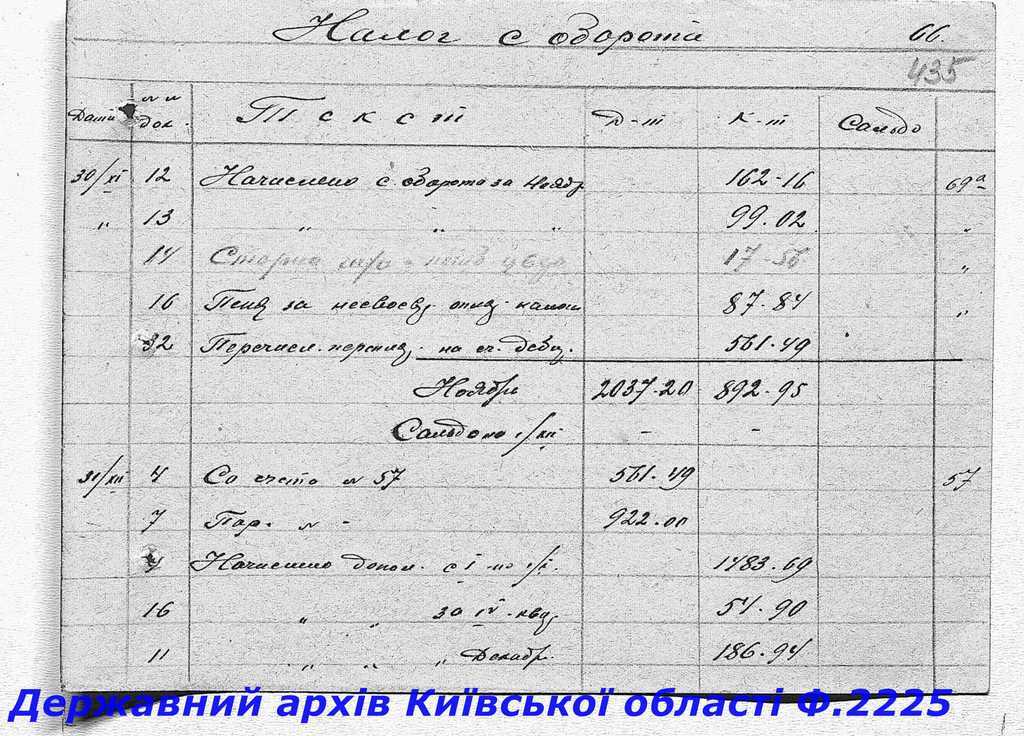 Налог с оборота 66.
435
Дата №№ док. Текст Д-т К-т Сальдо
30/XI 12 Начислено с оборота за Ноябр. 162-16 69а
" 13 " " " 99.02 "
14 Сторно 17-56 "
16 Пеня за несвоевр. налога 87.84 "
32 Перечисл. переплач. на сч. дебит. 561.49
Ноябрь 2037-20 892.95
Сальдо на 1/XII - -
31/XII 4 Со счета № 57 561.49 57
7 № - 922.00
9 Начислено допол. с 1483.69
16 " " за IV кварт. 54.90
11 " " " Декабр. 186.94
Державний архів Київської області Ф.2225